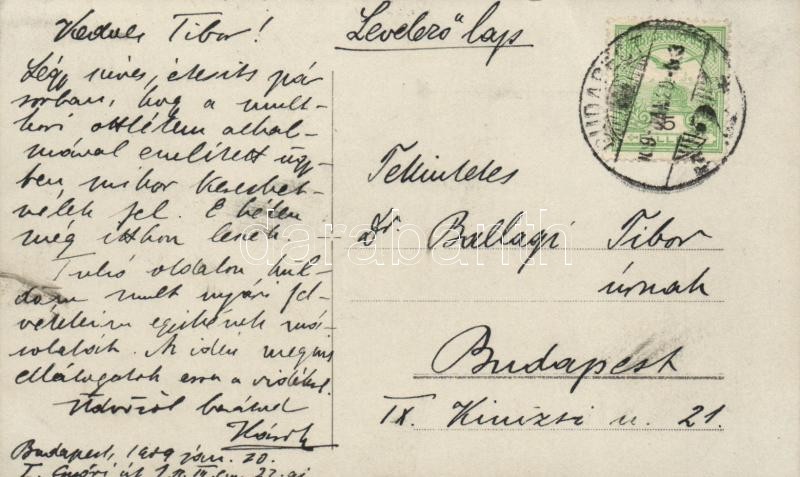 Kedves Tibor!
Légy szives, értesits pár
sorban, hogy a mult-
kori ottlétem alkal-
mával emlitett ügy-
ben mikor kereshet-
nélek fel. E héten
még itthon leszek.
Tulsó oldalon kül-
döm mult nyári fel-
vételeim egyikének má-
solatát. Az idén megint
ellátogatok erre a vidékre.
Üdvözöl barátod
Budapest, 1909 jún. 20.
I. Győri út
Levelező lap
Tekintetes
Dr. Ballagi Tibor
úrnak
Budapest
IX. Kinizsi u. 21.
BUDAPEST
darabanth